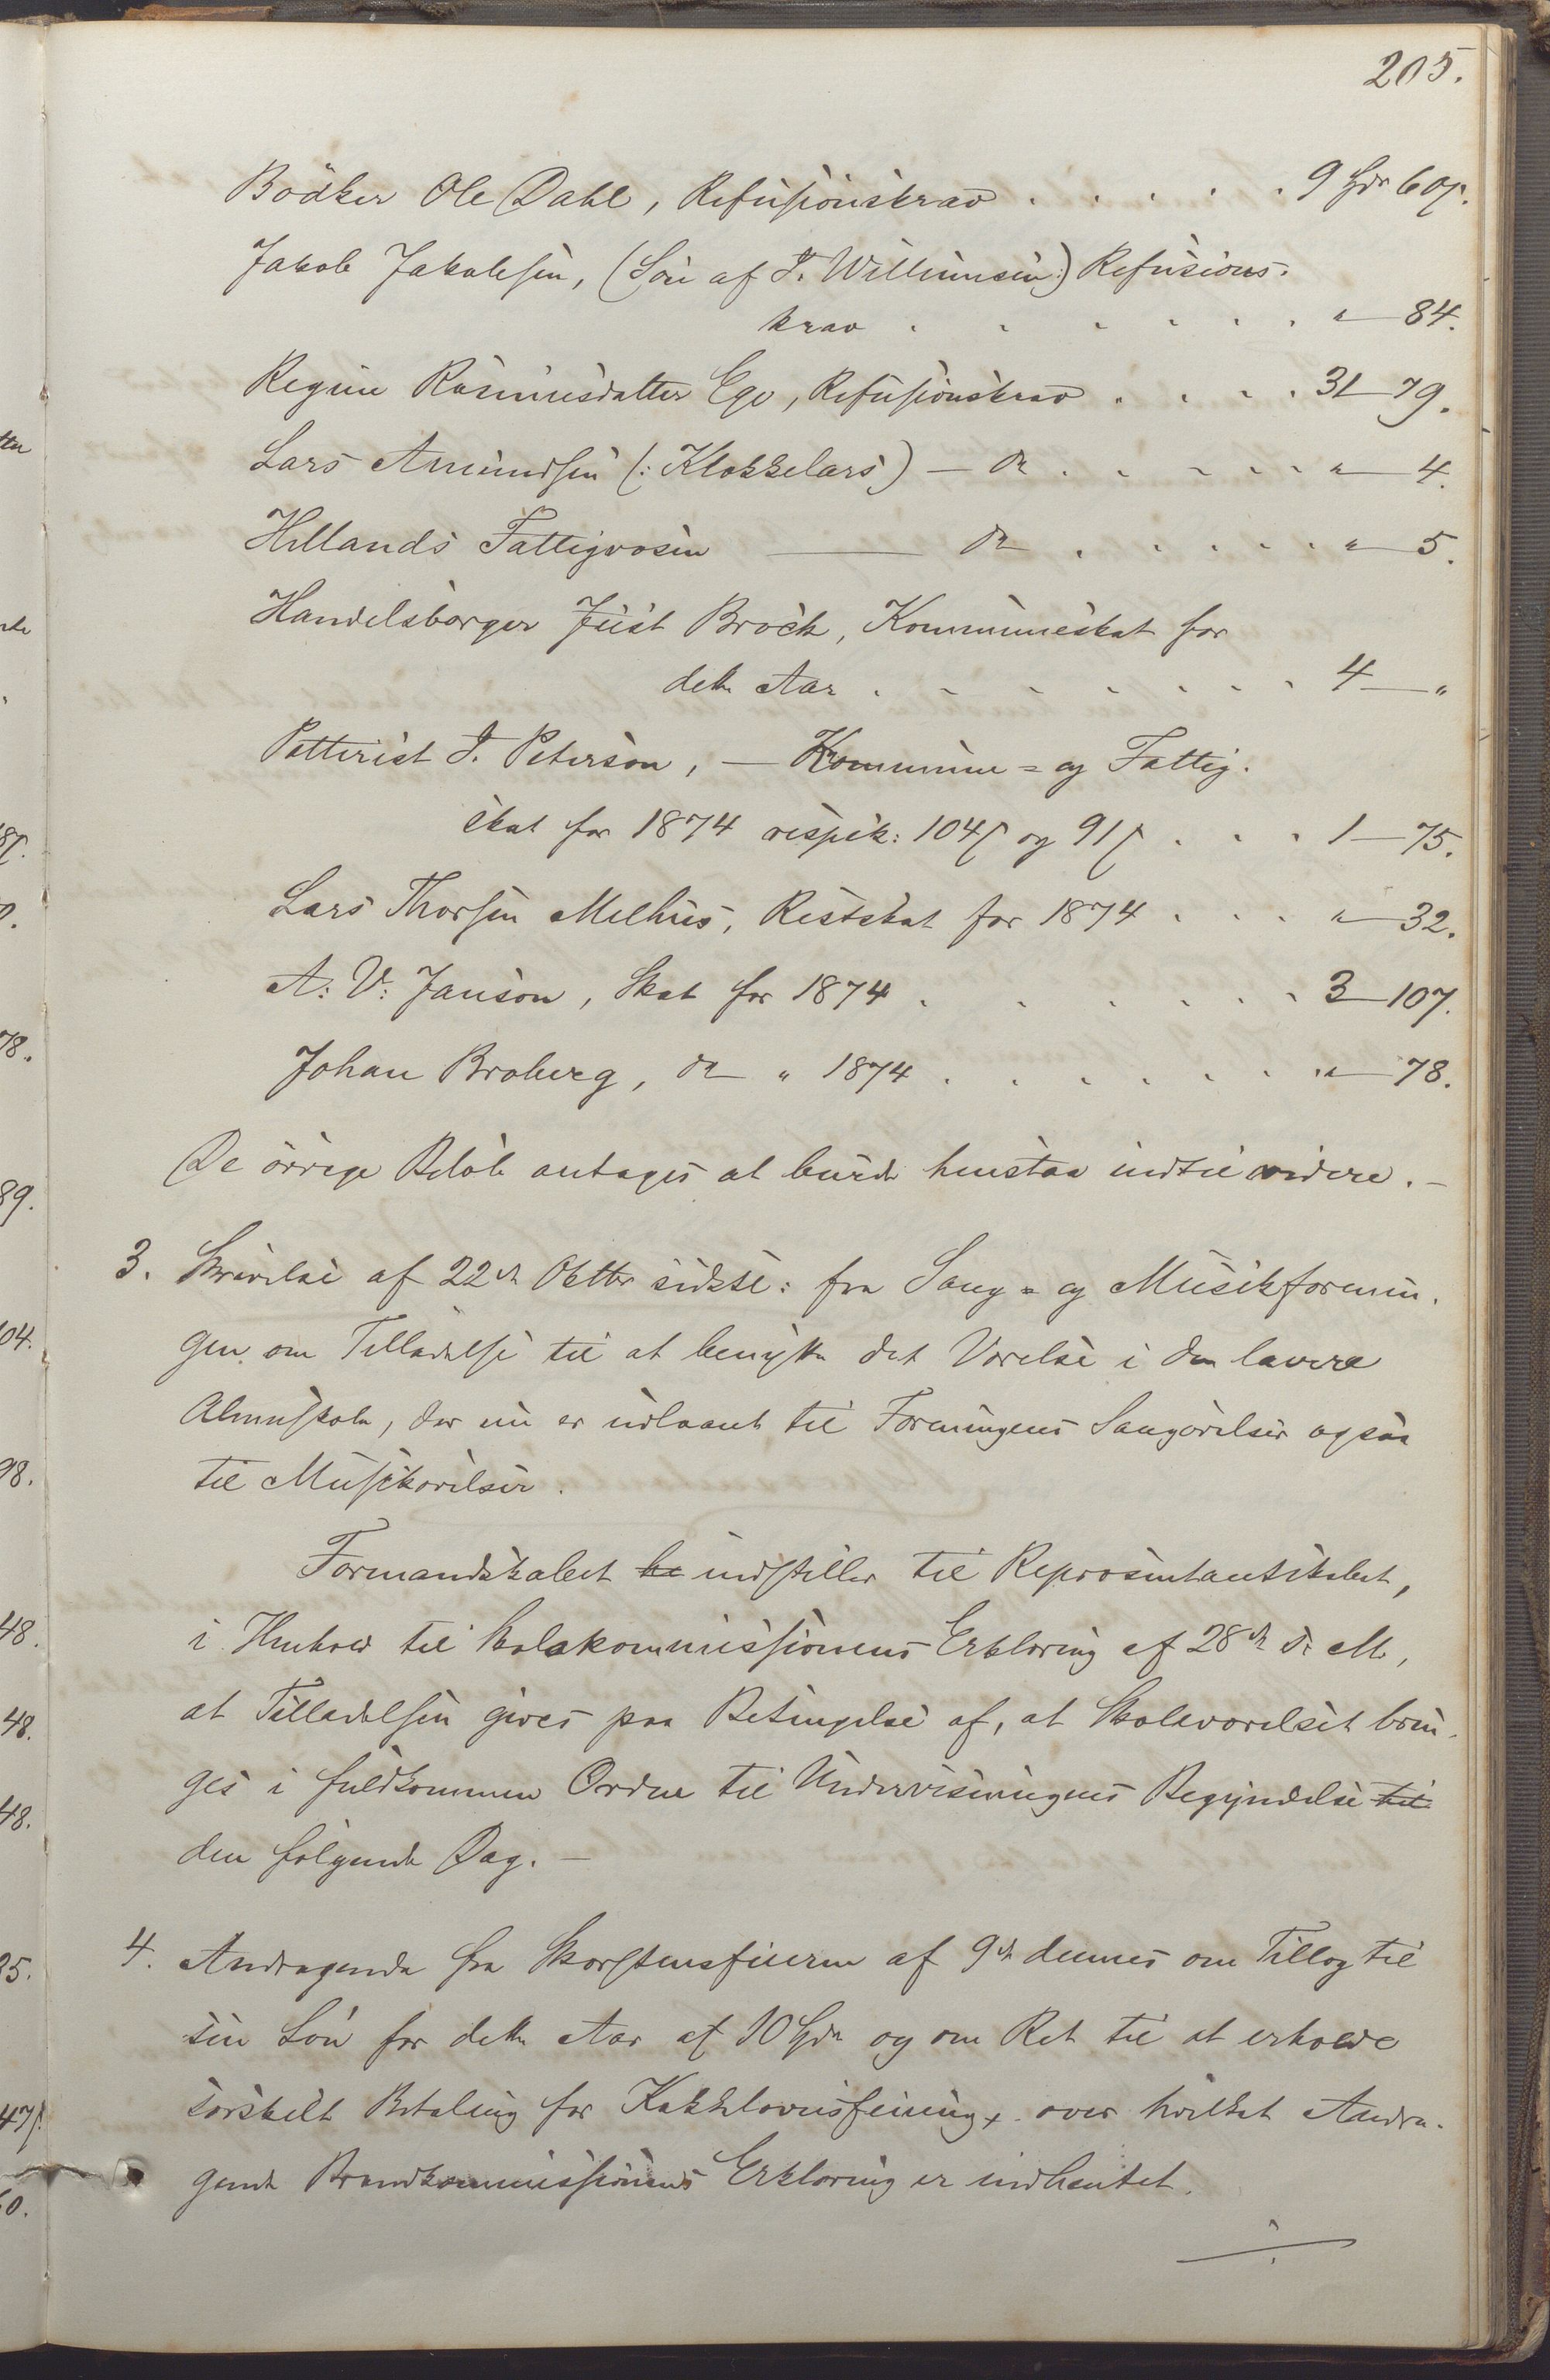 205.
Bödker Ole Dahl, Refusionskrav . . . . . 9 Spdr 60 ß.
Jakob Jakobsen, (Søn af T. Willumsen:) Refusions-
krav . . . . . . . " — 84.
Regine Rasmusdatter Ege, Refusionskrav . . . . 31 — 79.
Lars Amundsen (: Klokkelars) — do . . . . . " — 4.
Hillands Fattigvæsen — do . . . . . " — 5.
Handelsborger Just Broch, Kommuneskat for
dette Aar . . . . . . . 4 — "
Potterist T. Peterson, — Kommune- og Fattig-
skat for 1874 respek: 104 ß og 91 ß . . . 1 — 75.
Lars Thorsen Melhus, Restskat for 1874 . . . " — 32.
A: V: Janson, Skat for 1874 . . . . . . 3 — 107.
Johan Broberg, do " 1874 . . . . . . " — 78.
De övrige Beløb antages at burde henstaa indtil videre. —
3. Skrivelse af 22de Oktbr sidstl: fra Sang- og Musikforenin-
gen om Tilladelse til at benytte det Værelse i den lavere
Almuskole, der nu er udlaant til Foreningens Sangøvelser ogsaa
til Musikøvelser.
Formandskabet be indstiller til Repræsentantskabet,
i Henhold til Skolekommissionens Erklæring af 28de d. M.,
at Tilladelsen gives paa Betingelse af, at Skoleværelset brin-
ges i fuldkommen Orden til Undervisningens Begyndelse til
den følgende Dag. —
4. Andragende fra Skorstensfeieren af 9de dennes om Tillæg til
sin Løn for dette Aar af 10 Spdr og om Ret til at erholde
særskilt Betaling for Kakkelovnsfeining, over hvilket Andra-
gende Brandkommissionens Erklæring er indhentet.